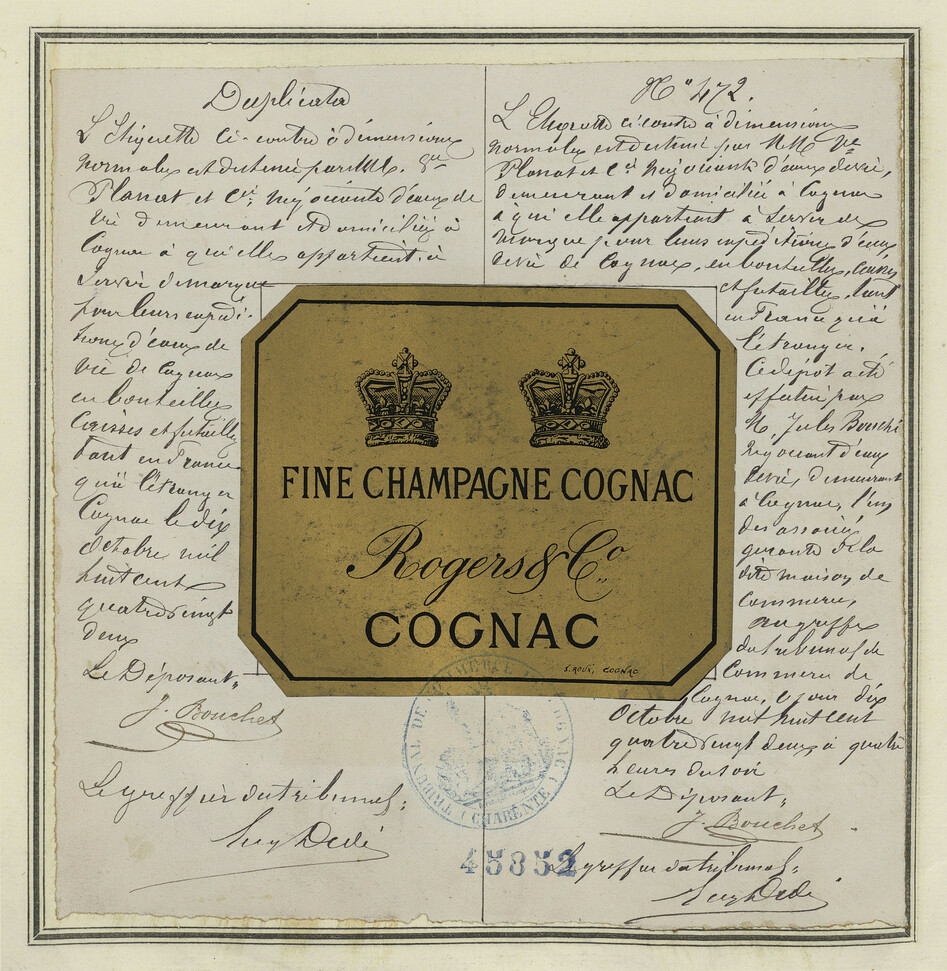 Duplicata
L'Etiquette ci-contre à dimensions
normales est destinée par MM. Vve
Planat et Cie négociants d'eaux de
vie demeurant et domiciliés à
Cognac à qui elle appartient, à
servir de marque
pour leurs expédi-
tions d'eaux de
vie de Cognac
en bouteilles
Caisses et futailles
tant en France
qu'à l'étranger
Cognac le dix
Octobre mil
huit cent
quatre vingt
deux
Le Déposant,
J. Bouchet
Le greffier du tribunal,
N° 472.
L'Etiquette ci contre à dimensions
normales est destiné par MM Vve
Planat et Cie négociants d'eaux de vie,
demeurant et domicilié à Cognac
à qui elle appartient à servir de
marque pour leurs expéditions d'eaux
de vie de Cognac, en bouteilles, caisses
et futailles, tant
en France qu'à
l'étranger.
Ce dépôt a été
effectué par
M. Jules Bouchet
négociant d'eaux
de vie, demeurant
à Cognac, l'un
des associés
gérants de la
dite maison de
Commerce,
au greffe
du tribunal de
Commerce de
Cognac, ce jour dix
Octobre mil huit cent
quatre vingt deux à quatre
heures du soir
Le Déposant,
J. Bouchet
Le greffier du tribunal,
FINE CHAMPAGNE COGNAC
Rogers & Co
COGNAC
S. ROUX, COGNAC
TRIBUNAL DE COMMERCE COGNAC (CHARENTE)
45852